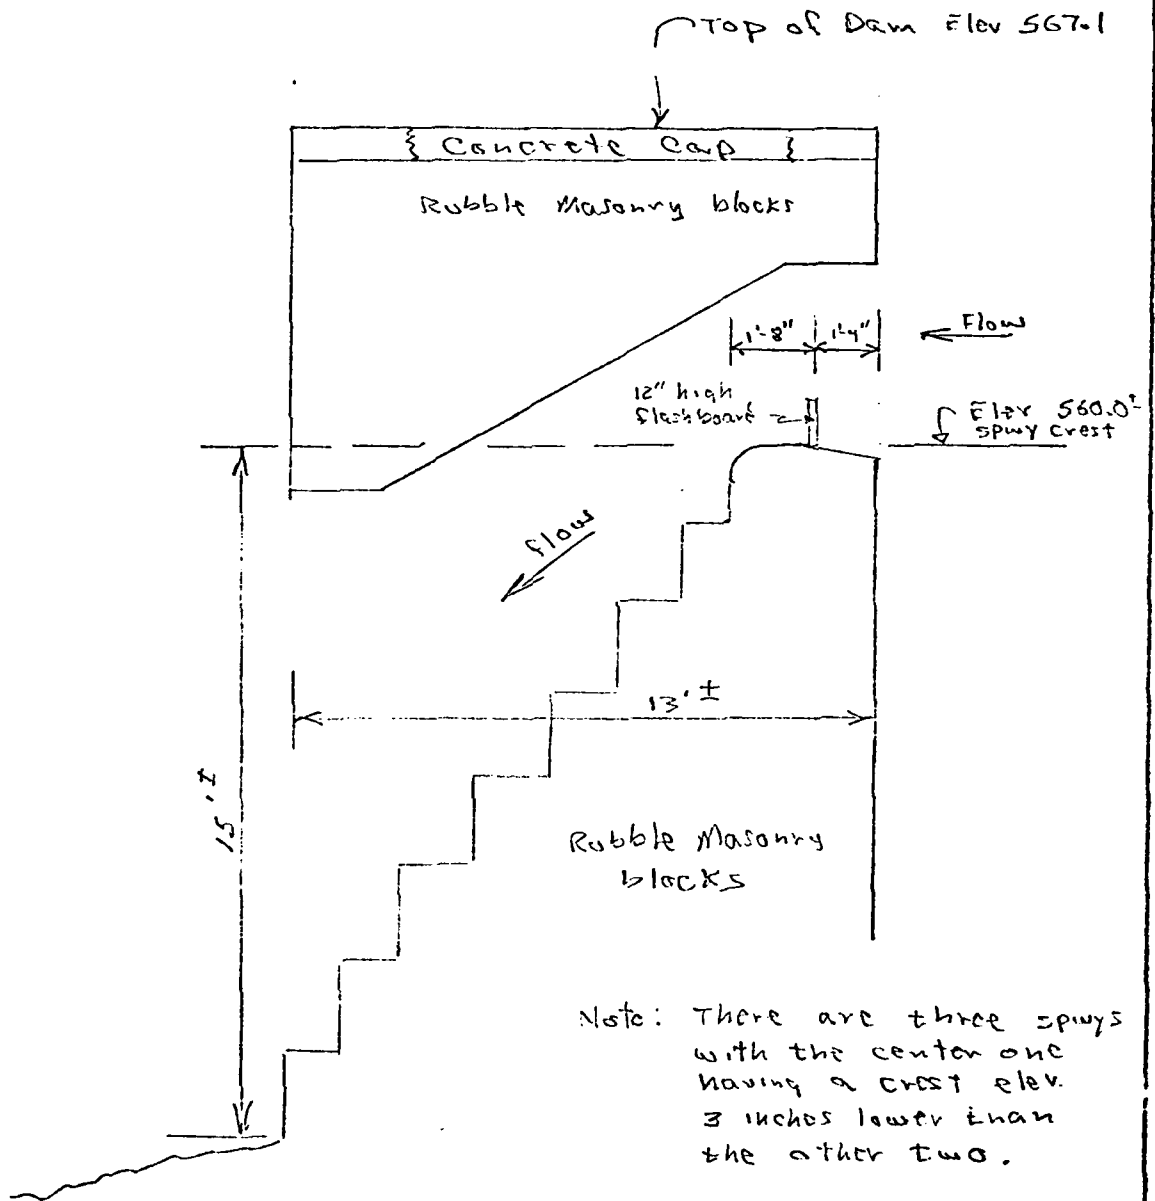 Top of Dam Elev 567.1
{ Concrete Cap }
Rubble Masonry blocks
1'-8"
1'-4"
Flow
12" high
flashboard
Elev 560.0±
spwy crest
flow
13'±
15'±
Rubble Masonry
blocks
Note: There are three spwys
with the center one
having a crest elev.
3 inches lower than
the other two.